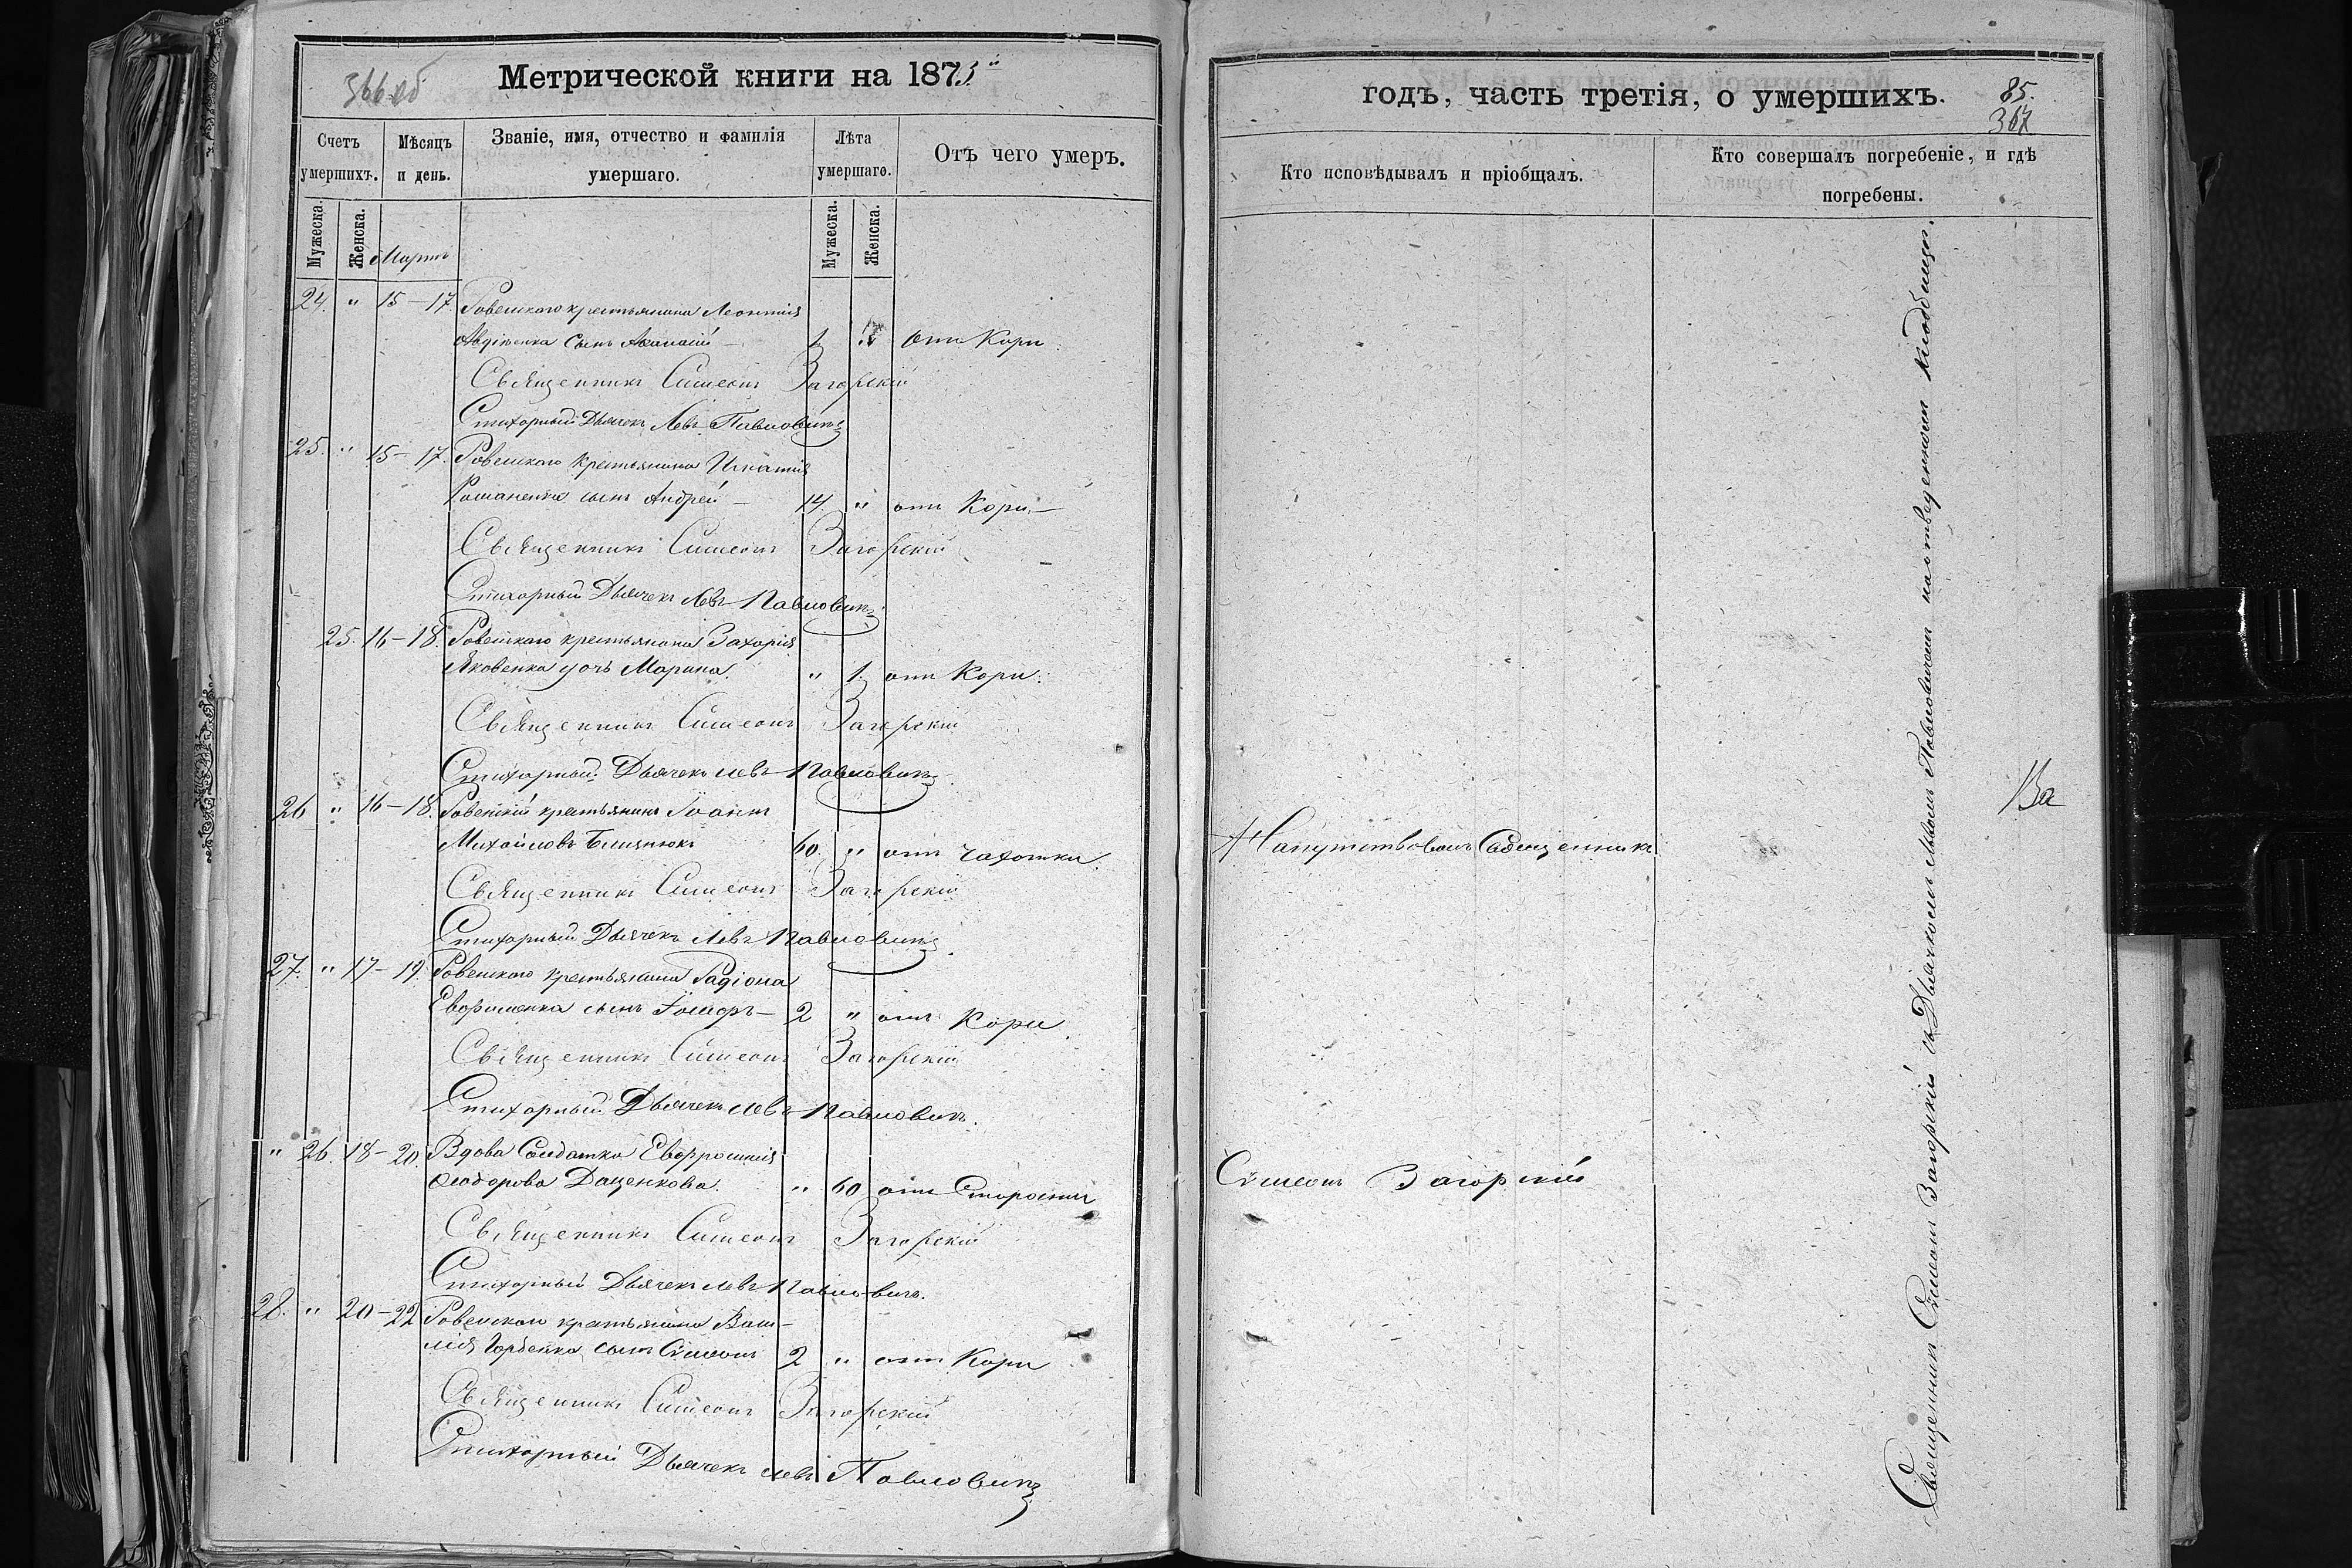 366 об
Метрической книги на 1873й
Счетъ умершихъ.
Мѣсяцъ и день.
Званіе, имя, отчество и фамилія умершаго.
Лѣта умершаго.
Отъ чего умеръ.
Мужеска.
Женска.
Мартъ
Мужеска.
Женска.
24. " 15-17. Ровенского крестьянина Леонтія
сынъ Афанасій - 1 отъ Кори.
Священникъ Симеонъ Загорскій
Стихорный Дьячекъ Левъ Павловичъ
25. " 15-17. Ровенского крестьянина Игнатія
Романенка сынъ Андрей - 14. " отъ Кори.-
Священникъ Симеонъ Загорскій
Стихорный Дьячекъ Левъ Павловичъ
25. 16-18. Ровенского крестьянина Захорія
Яковенка дочь Марина. " 1. отъ Кори.
Священникъ Симеонъ Загорскій
Стихорный Дьячекъ Левъ Павловичъ
26 " 16-18. Ровенскій крестьянинъ Іоаннъ
Михайловъ 60. " отъ чахотки.
Священникъ Симеонъ Загорскій
Стихорный Дьячекъ Левъ Павловичъ
27. " 17-19. Ровенского крестьянина Радіона
сынъ 2 " отъ Кори.
Священникъ Симеонъ Загорскій
Стихорный Дьячекъ Левъ Павловичъ.
" 26. 18-20. Вдова Солдатка Евфросинія
Ѳеодорова Даценкова. " 60 отъ Старости
Священникъ Симеонъ Загорскій
Стихорный Дьячекъ Левъ Павловичъ.
28. " 20-22 Ровенского крестьянина Васи-
лія Горбенка сынъ Сѵмеонъ 2 " отъ Кори
Священникъ Симеонъ Загорскій
Стихорный Дьячекъ Левъ Павловичъ
годъ, часть третія, о умершихъ.
85.
367
Кто исповѣдывалъ и пріобщалъ.
Кто совершалъ погребеніе, и гдѣ погребены.
Напутствовалъ Священникъ
Сѵмеонъ Загорскій
Священникъ Сѵмеонъ Загорскій съ Дьячкомъ Львомъ Павловичемъ на отведенномъ кладбищѣ.